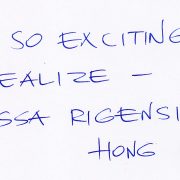 SO EXCITING
EALIZE –
SSA RIGENSI
HONG